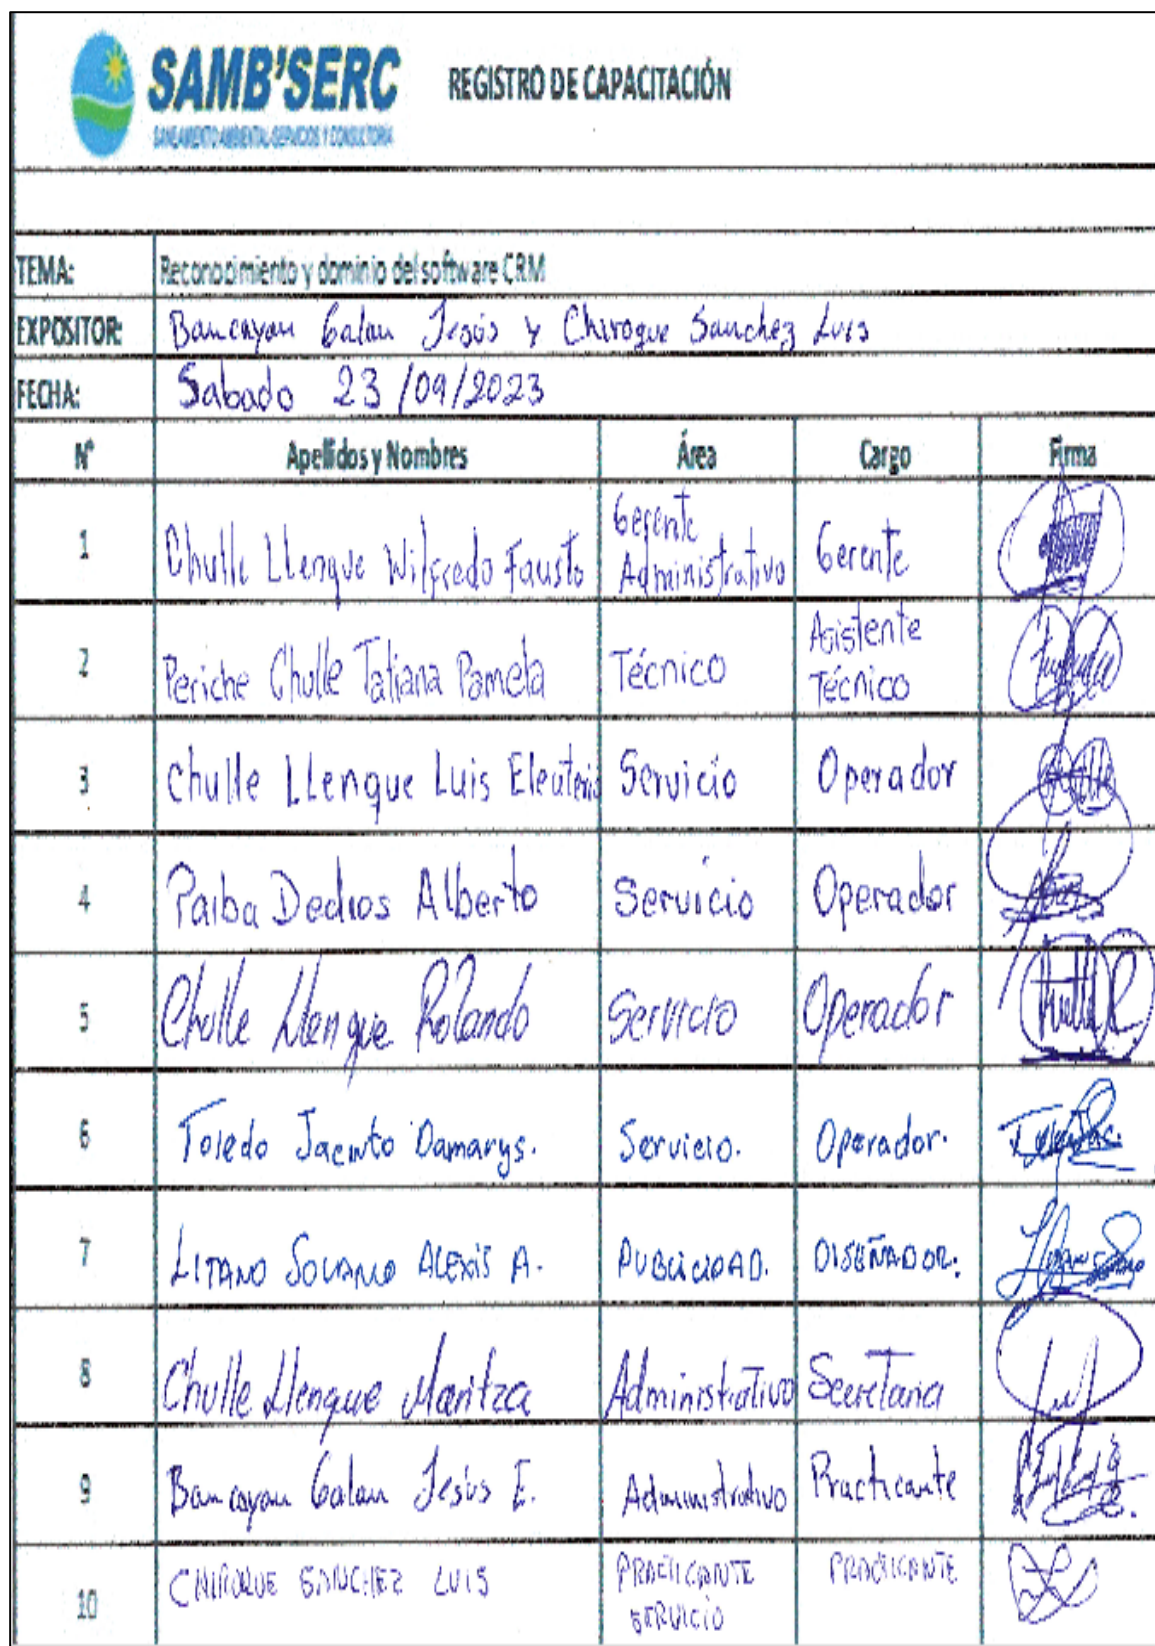 SAMB'SERC
SANEAMIENTO AMBIENTAL-SERVICIOS Y CONSULTORIA
REGISTRO DE CAPACITACIÓN
TEMA: Reconocimiento y dominio del software CRM
EXPOSITOR: Bancayan Galan Jesús y Chiroque Sanchez Luis
FECHA: Sabado 23/09/2023
N° Apellidos y Nombres Área Cargo Firma
1 Chulle Llenque Wilfredo Fausto Gerente Administrativo Gerente
2 Periche Chulle Tatiana Pamela Técnico Asistente Técnico
3 Chulle Llenque Luis Eleuterio Servicio Operador
4 Paiba Dedios Alberto Servicio Operador
5 Chulle Llenque Rolando Servicio Operador
6 Toledo Jacinto Damarys. Servicio. Operador.
7 LITANO SOLANO ALEXIS A. PUBLICIDAD. DISEÑADOR.
8 Chulle Llenque Maritza Administrativo Secretaria
9 Bancayan Galan Jesús E. Administrativo Practicante
10 CHIROQUE SANCHEZ LUIS PRACTICANTE SERVICIO PRACTICANTE